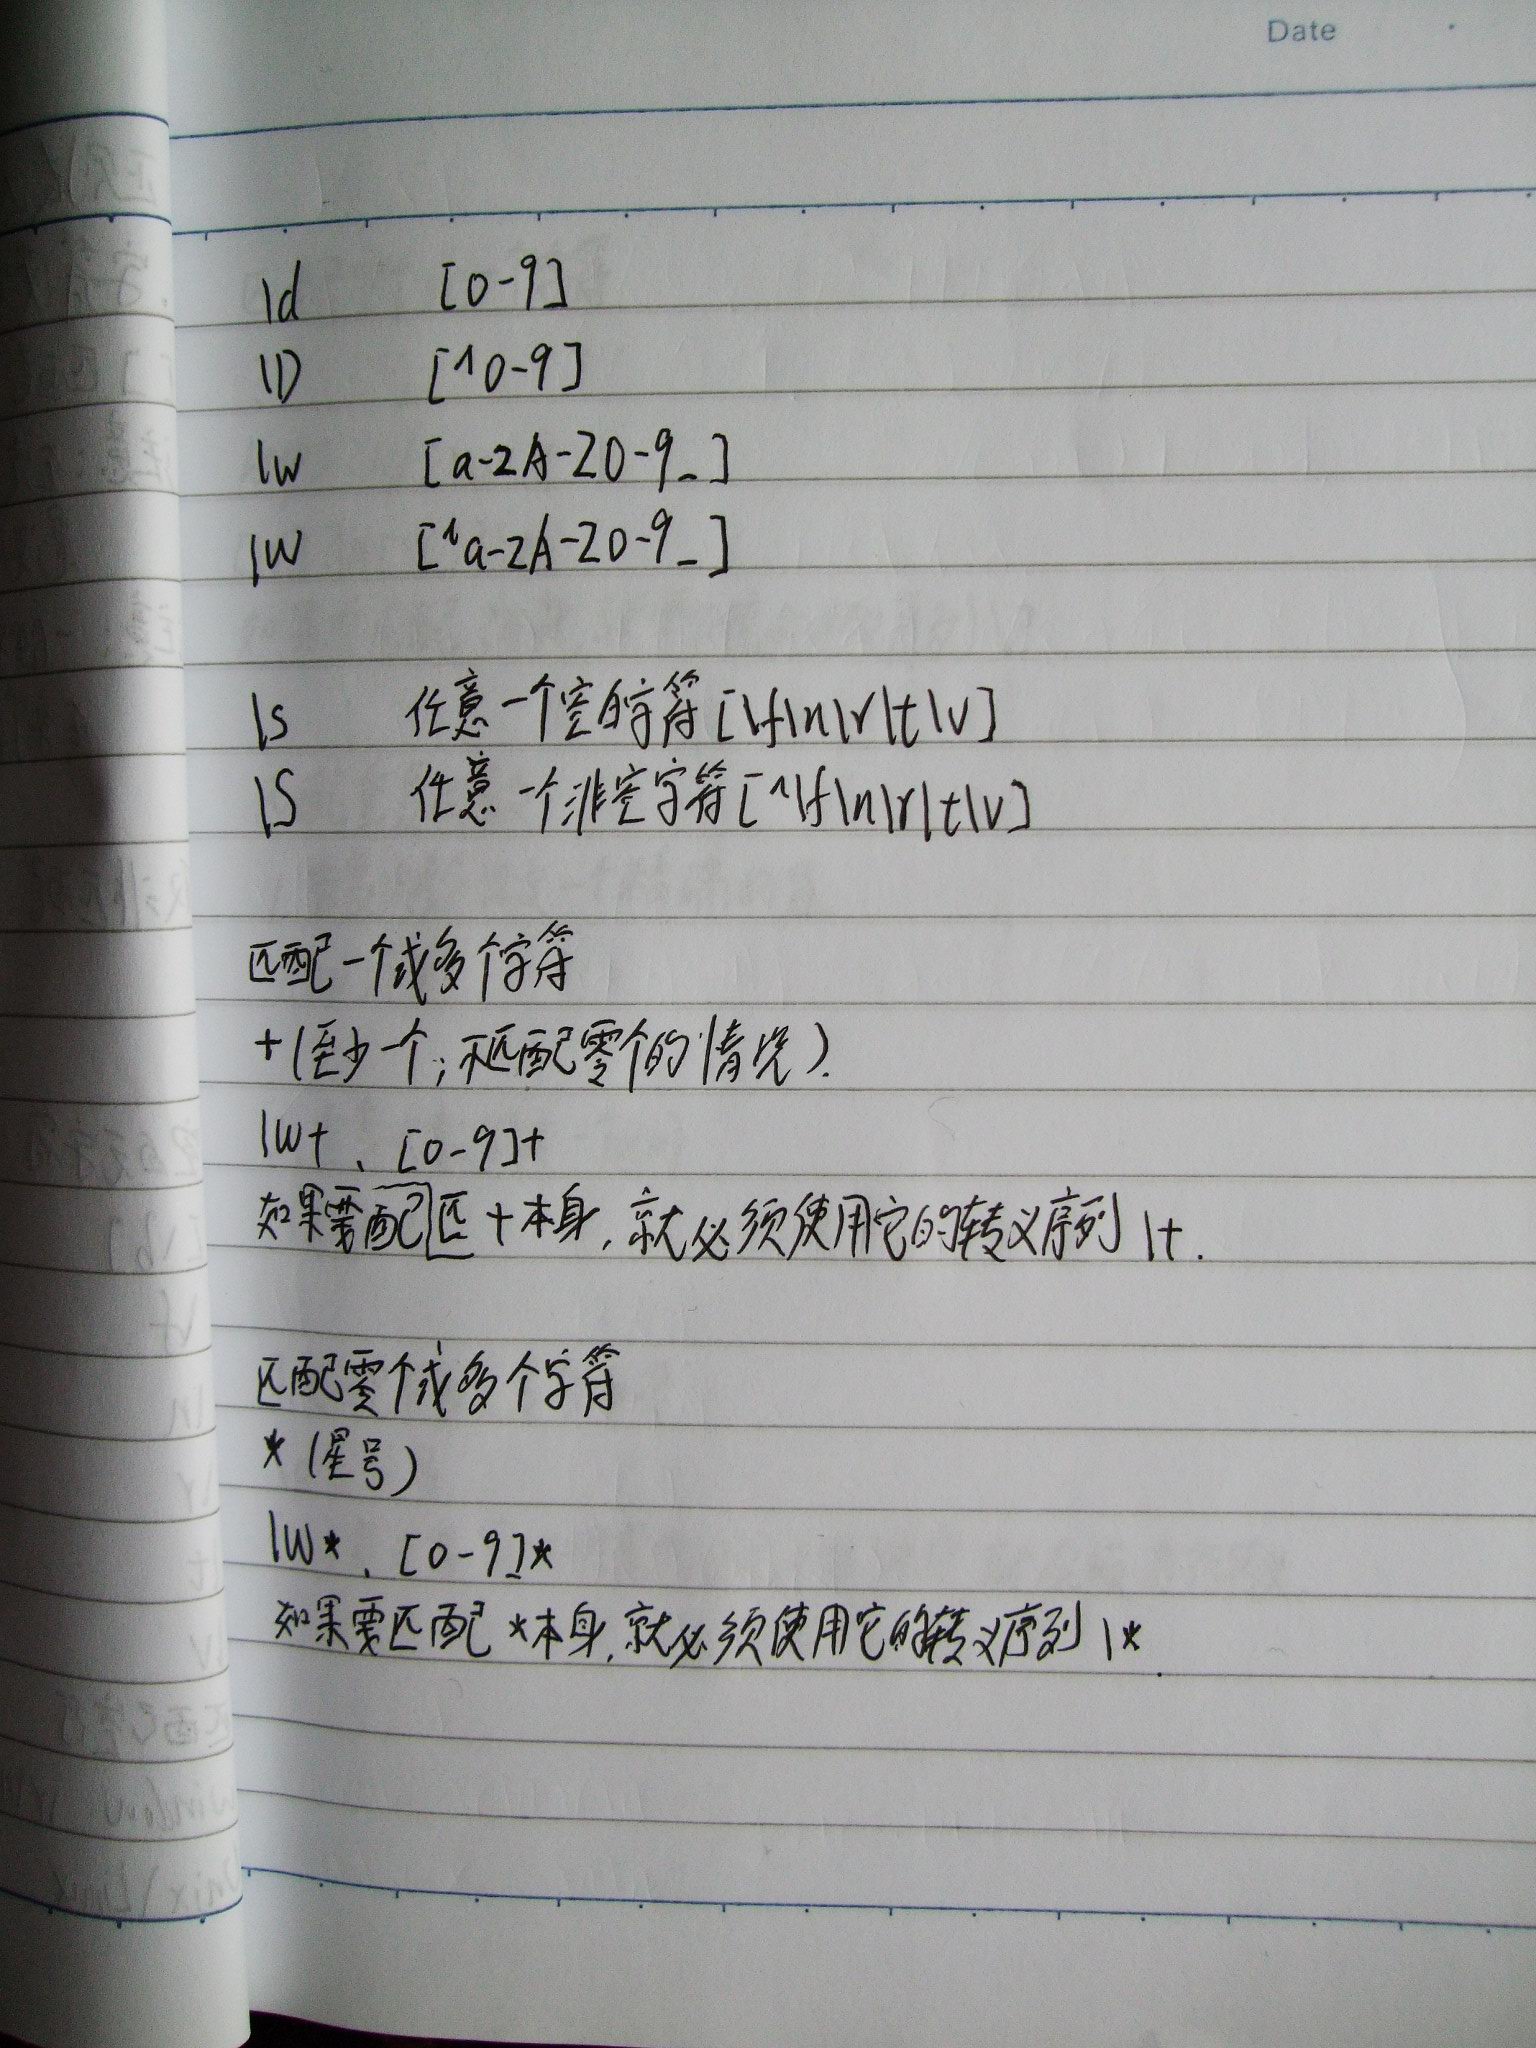 Date
\d [0-9]
\D [^0-9]
\w [a-zA-Z0-9_]
\W [^a-zA-Z0-9_]
\s 任意一个空白字符[\f\n\r\t\v]
\S 任意一个非空字符[^\f\n\r\t\v]
匹配一个或多个字符
+(至少一个;不匹配零个的情况).
\w+、[0-9]+
如果需配匹+本身,就必须使用它的转义序列\+.
匹配零个或多个字符
*(星号)
\w*、[0-9]*
如果需匹配*本身,就必须使用它的转义序列\*.